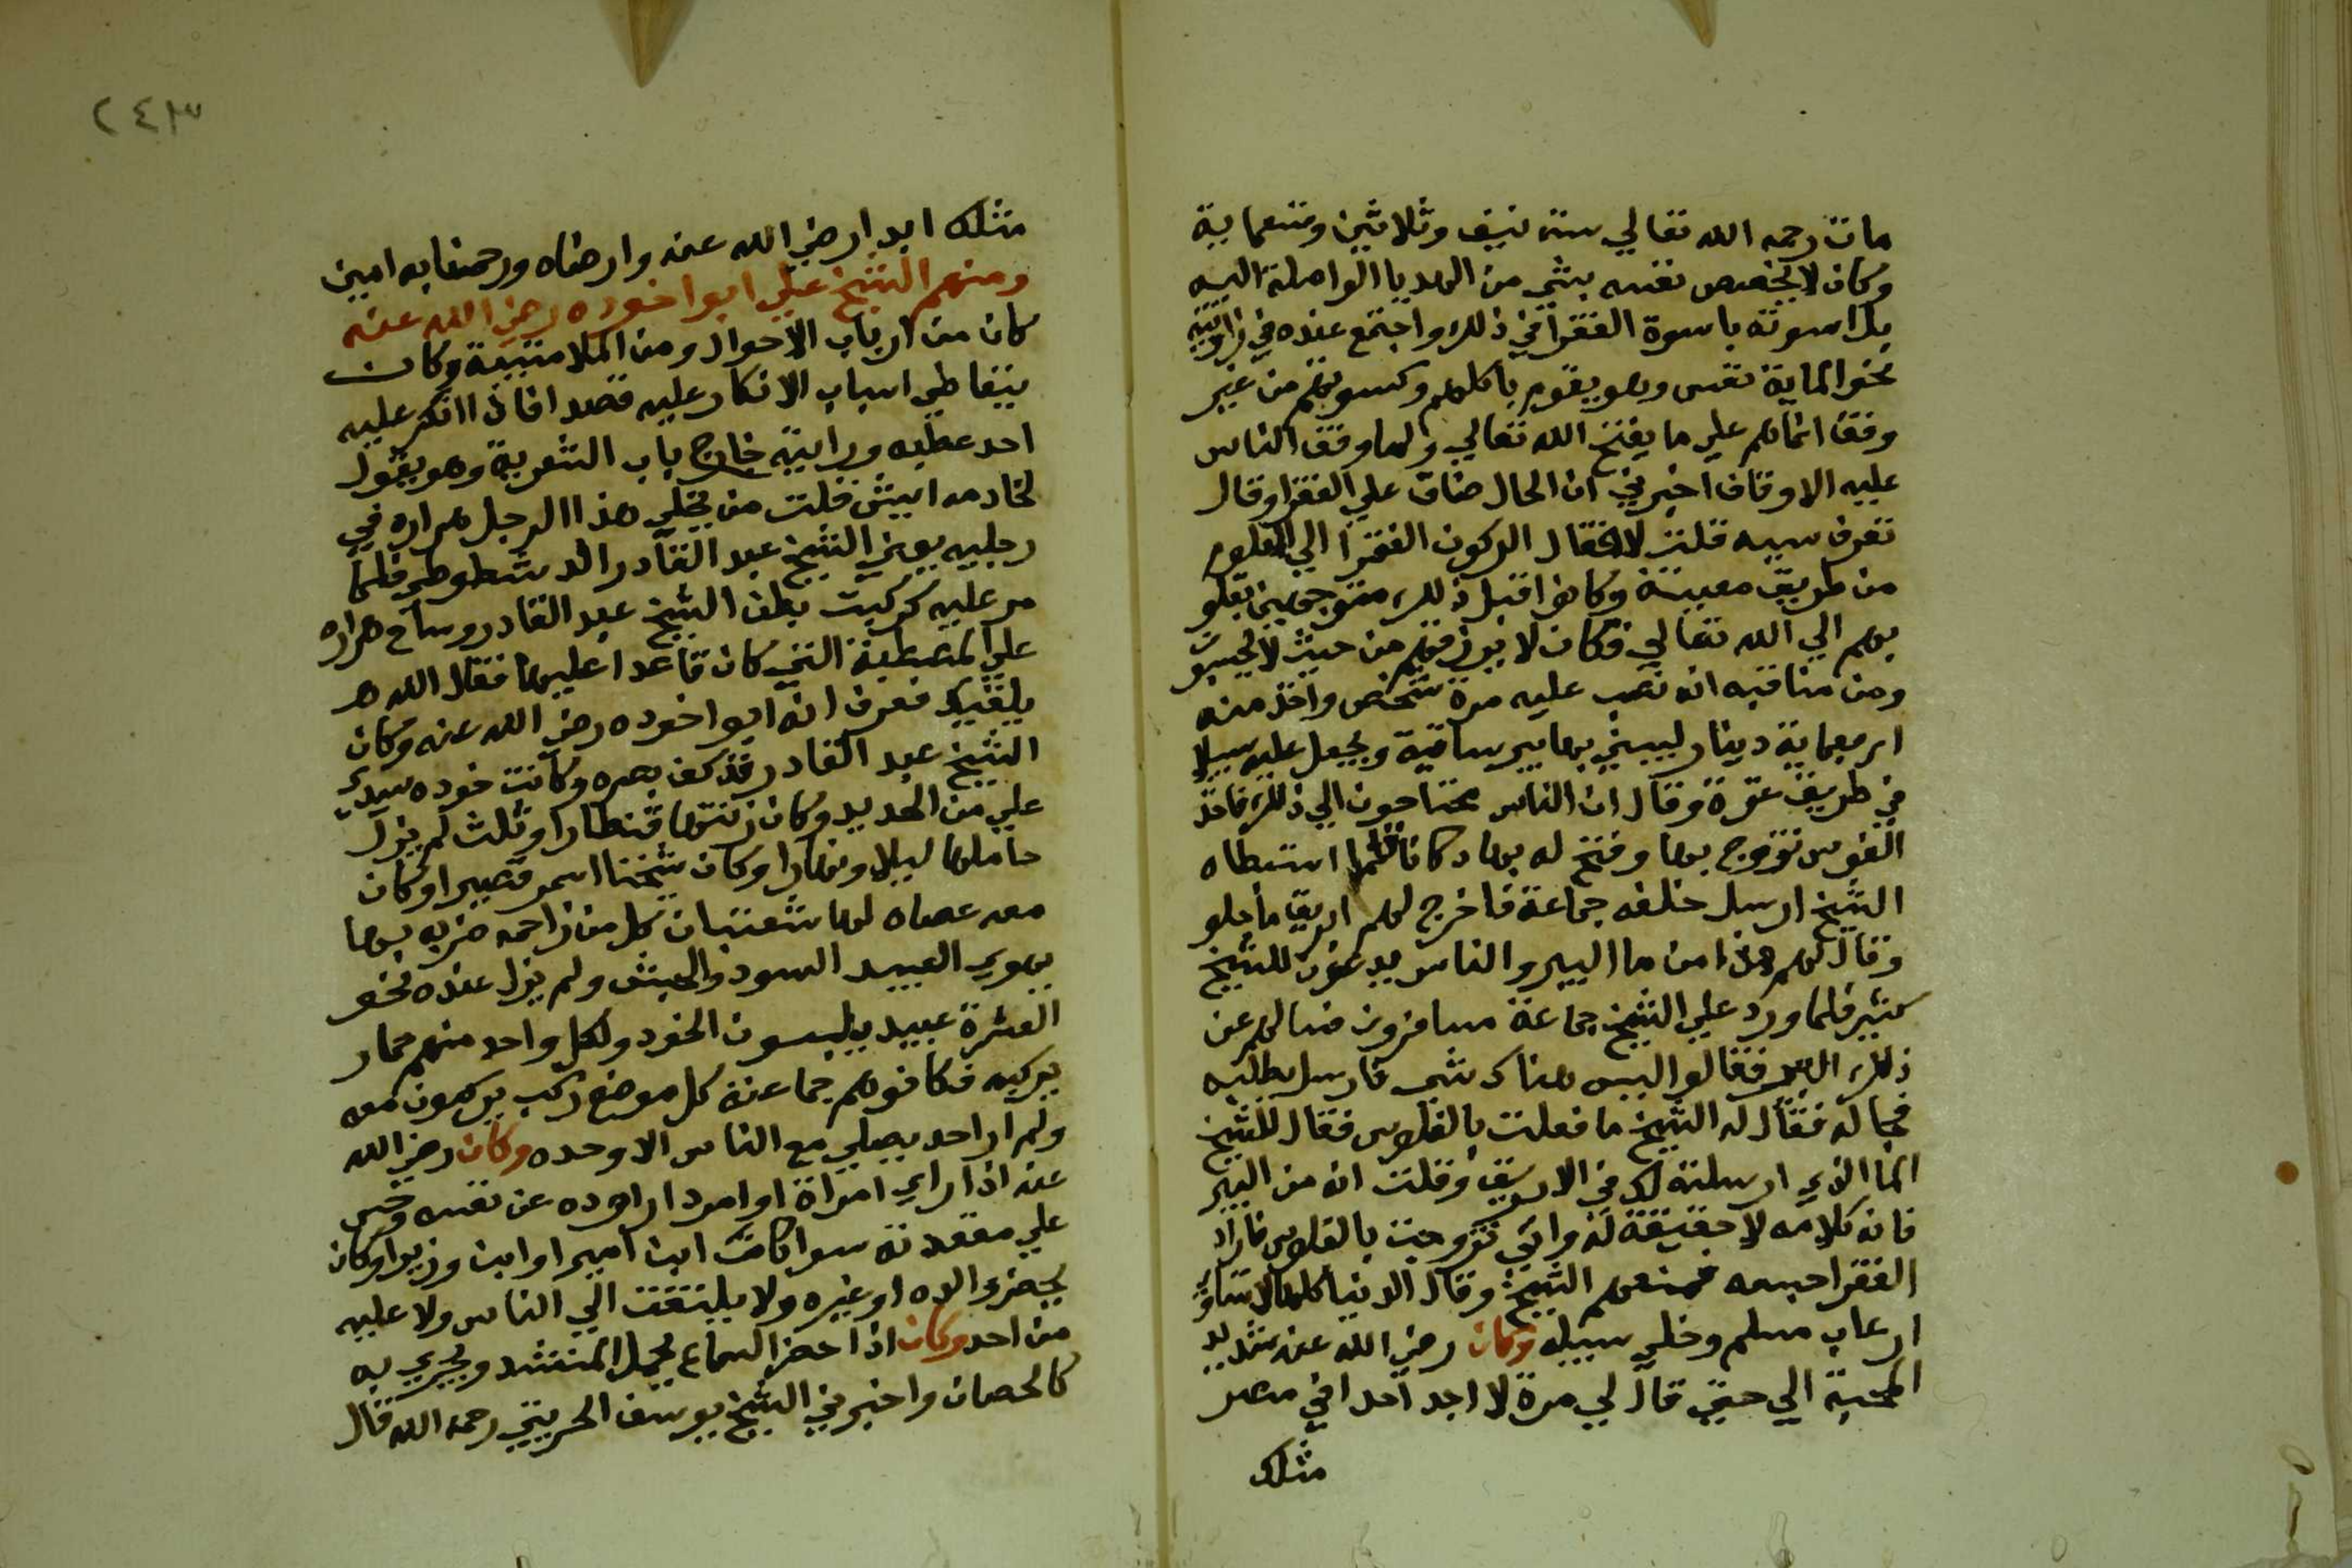 مات رحمه الله تعالي سنة نيف وثلاثين وتسعماية
وكان لا يخصص نفسه بشي من الهدايا الواصلة اليه
بل اسوته باسوة الفقرا في ذلك واجتمع عنده في زاويته
نحو الماية نفس وهو يقوم باكلهم وكسوتهم من غير
وقف انما هم علي ما يفتح الله تعالي ولما وقف الناس
عليه الاوقاف اخبرني ان الحال ضاق علي الفقرا وقال
تعرف سببه قلت لا فقال الركون الفقرا الي المعلوم
من طريق معينة وكانوا قبل ذلك متوجهين بقلو
بهم الي الله تعالي فكان لا يرزقهم من حيث لا يحتسبون
ومن مناقبه انه نصب عليه مرة شخص واخذ منه
اربعماية دينار ليبني بها بير ساقية ويجعل عليه سبيلا
في طريق غزة وقال ان الناس محتاجون الي ذلك فاخذ
الفلوس تزوج بها وفتح له بها دكانا فلما استبطاه
الشيخ ارسل خلفه جماعة فاخرج لهم ابريق ما حلو
وقال لهم هذا من ما البير والناس يدعون للشيخ
كثير فلما ورد علي الشيخ جماعة مسافرون فسالهم عن
ذلك البير فقالوا ليس هناك شي فارسل بطلبه
فجا له فقال له الشيخ ما فعلت بالفلوس فقال للشيخ
الما الذي ارسلته لك في الابريق وقلت انه من البير
فانه كلام لا حقيقة له واني تزوجت بالفلوس فاراد
الفقرا حبسه فمنعهم الشيخ وقال الدنيا كلها لا تساوي
ارعاب مسلم وخلي سبيله وكان رضي الله عنه شديد
المحبة الي حتي قال لي مرة لا اجد احدا في مصر
مثلك
٢٤٣
مثلك ابدا رضي الله عنه وارضاه ورحمنا به امين
ومنهم الشيخ علي ابوا خوده رضي الله عنه
كان من ارباب الاحوال ومن الملامتية وكان
يتعاطي اسباب الانكار عليه قصدا فاذا انكر عليه
احد عطبه ورايته خارج باب الشعرية وهو يقول
لخادمه ايش قلت من يخلي هذا الرجل هراره في
رجليه يعني الشيخ عبد القادر الدشطوطي فلما
مر عليه كركبت بطن الشيخ عبد القادر وساح هراره
علي المصطبة التي كان قاعدا عليها فقال الله هـ
يلقيك فعرف انه ابوا خوده رضي الله عنه وكان
الشيخ عبد القادر قد كف بصره وكانت خوده سيدي
علي من الحديد وكان زنتها قنطارا وثلث لم يزل
حاملها ليلا ونهارا وكان شيخنا اسمر قصيرا وكان
معه عصاه لها شعبتان كل من زاحمه ضربه بها
يهوي العبيد السود والحبش ولم يزل عنده نحو
العشرة عبيد يلبسون الخود ولكل واحد منهم حمار
يركبه فكانوا هم جماعته كل موضع ركب يركبون معه
ولم ار احد يصلي مع الناس الا وحده وكان رضي الله
عنه اذا راي امراة او امرد راوده عن نفسه وحس
علي مقعدته سوا كان ابن امير او ابن وزير او كان
بحضرة والده او غيره ولا يلتفت الي الناس ولا عليه
من احد وكان اذا حضر السماع يحمل المنشد ويجري به
كالحصان واخبرني الشيخ يوسف الحريتي رحمه الله قال